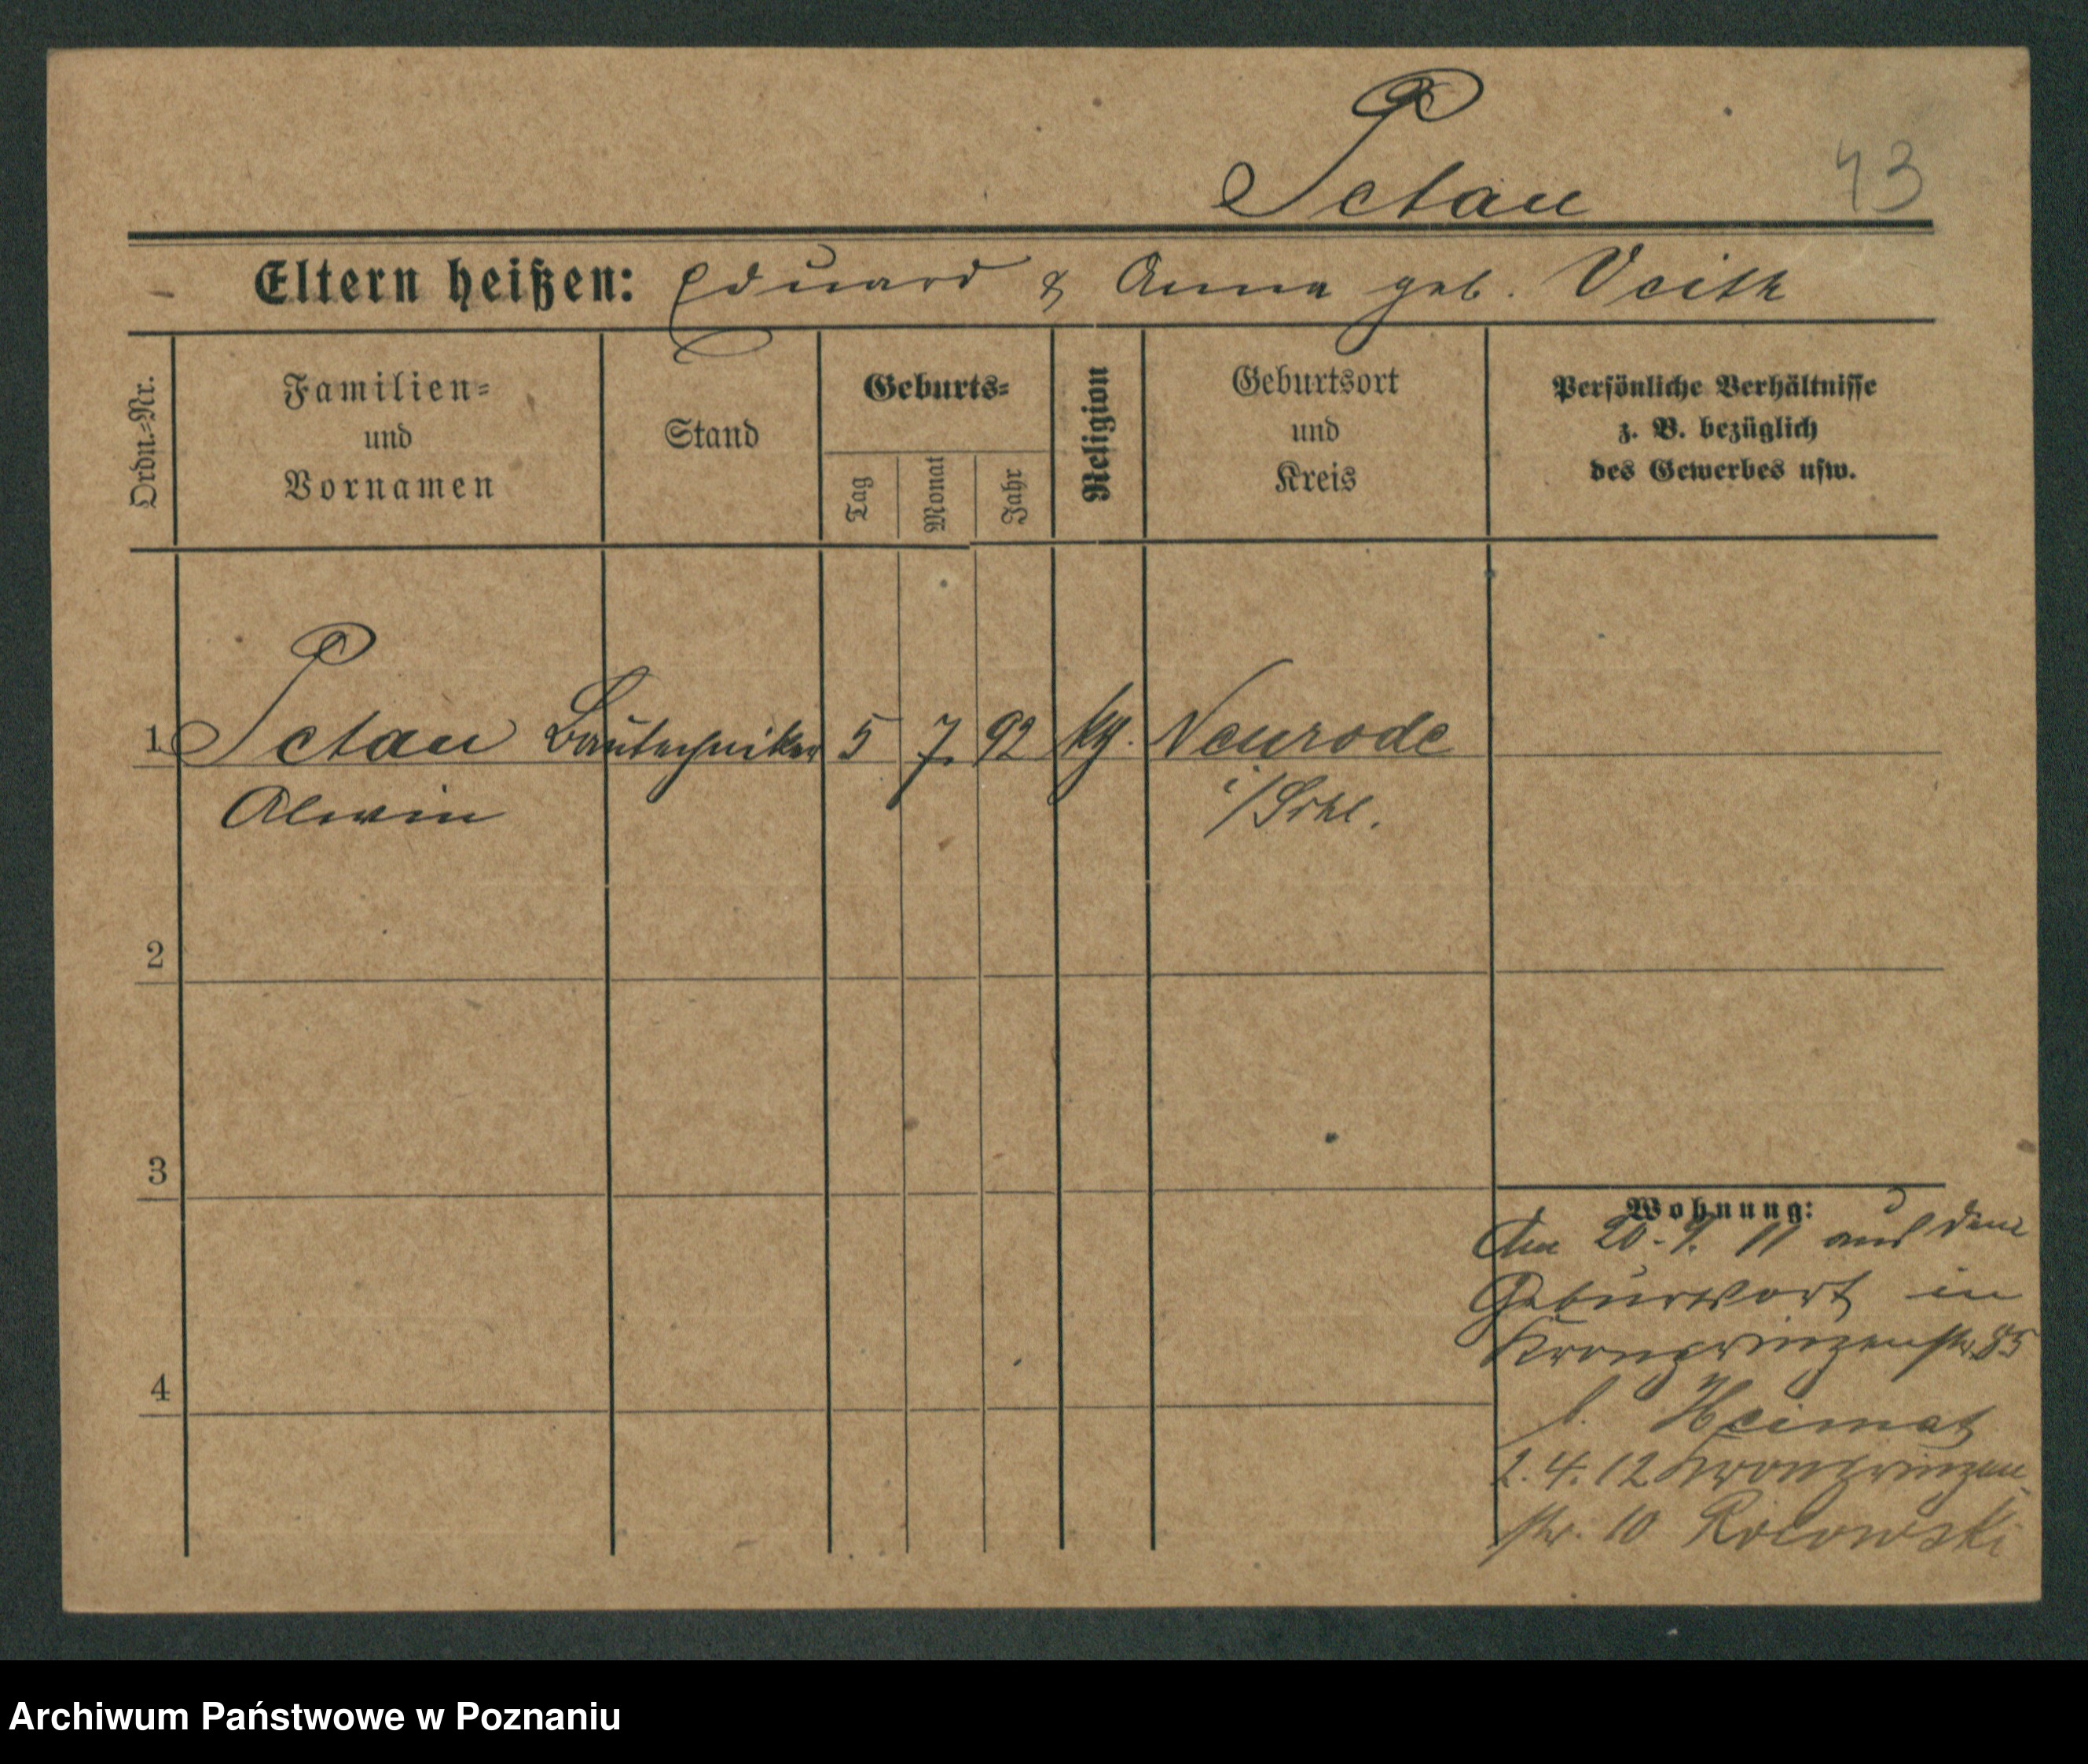 Petau 43
Eltern heißen: Eduard & Anna geb. Veith
Ordn.-Nr.
Familien-
und
Vornamen
Stand
Geburts-
Tag
Monat
Jahr
Religion
Geburtsort
und
Kreis
Persönliche Verhältnisse
z. B. bezüglich
des Gewerbes usw.
1 Petau Bautechniker 5 7. 92 kg. Neurode
Alwin i/Schl.
2
3
4
Wohnung:
Am 20. 9. 11 aus dem
Geburtsort in
Kronprinzenstr. 85
b. Heimat
2. 4. 12 Kronprinzen
str. 10
Archiwum Państwowe w Poznaniu